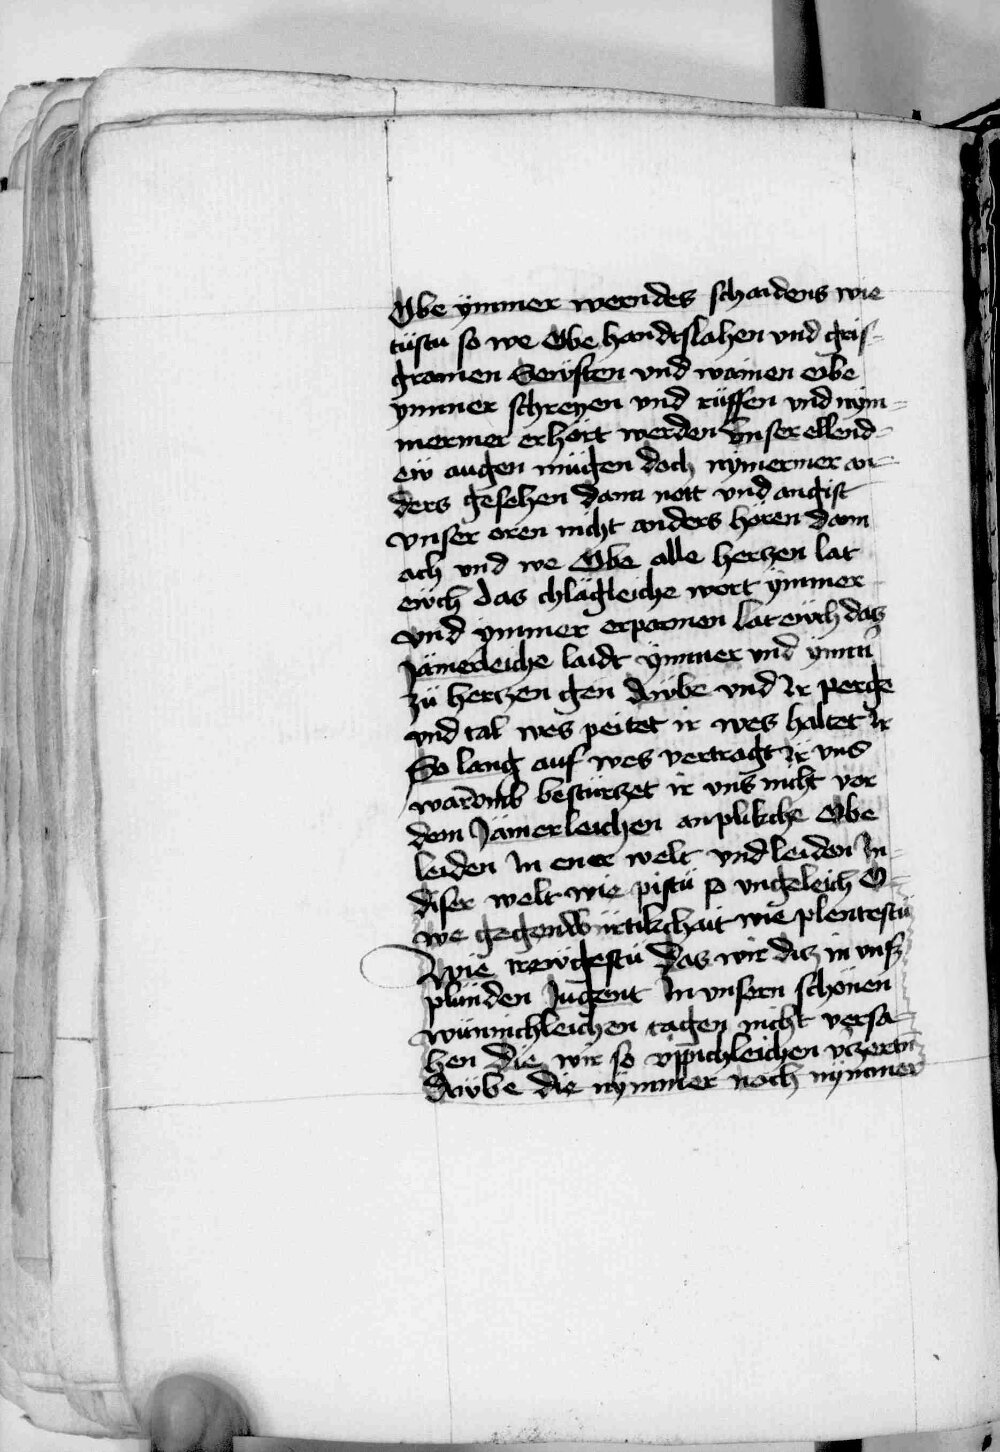 Obe ymmer werndes schaidens wie
tüstu so we Obe handtslahen und gris-
gramen Sewften vnd wainen obe
ymmer schreyen vnd rüffen vnd nym-
mermer erhört werden Vnser ellend-
ew augen mügen doch nymermer an-
ders gesehen dann nott vnd angist
vnser oren nicht anders hören dann
ach vnd we Obe alle herczen lat
ewch das chlägleiche wort ymmer
vnd ymmer erparmen lat ewch das
Jämerleiche laidt ymmer vnd ymm
zü herczen gen Awbe vnd Ir perge
vnd tal wes peitet ir wes haltet Ir
So lang auf wes vertragt Ir vns
waromb bestürczet ir vns nicht vor
dem Jämerleichen anplikche Obe
leiden In ener welt vnd leiden In-
diser welt wie pistü so vngeleich O-
we gegenwürtikchait wie plentestü
wie trewgestu Das wir dis in vnsz
plünden Jugent In vnsern schönen
wünnichleichen tagen nicht versa-
hen die wir so vppichleichen vczertn
Awbe die nymmer noch nymmer